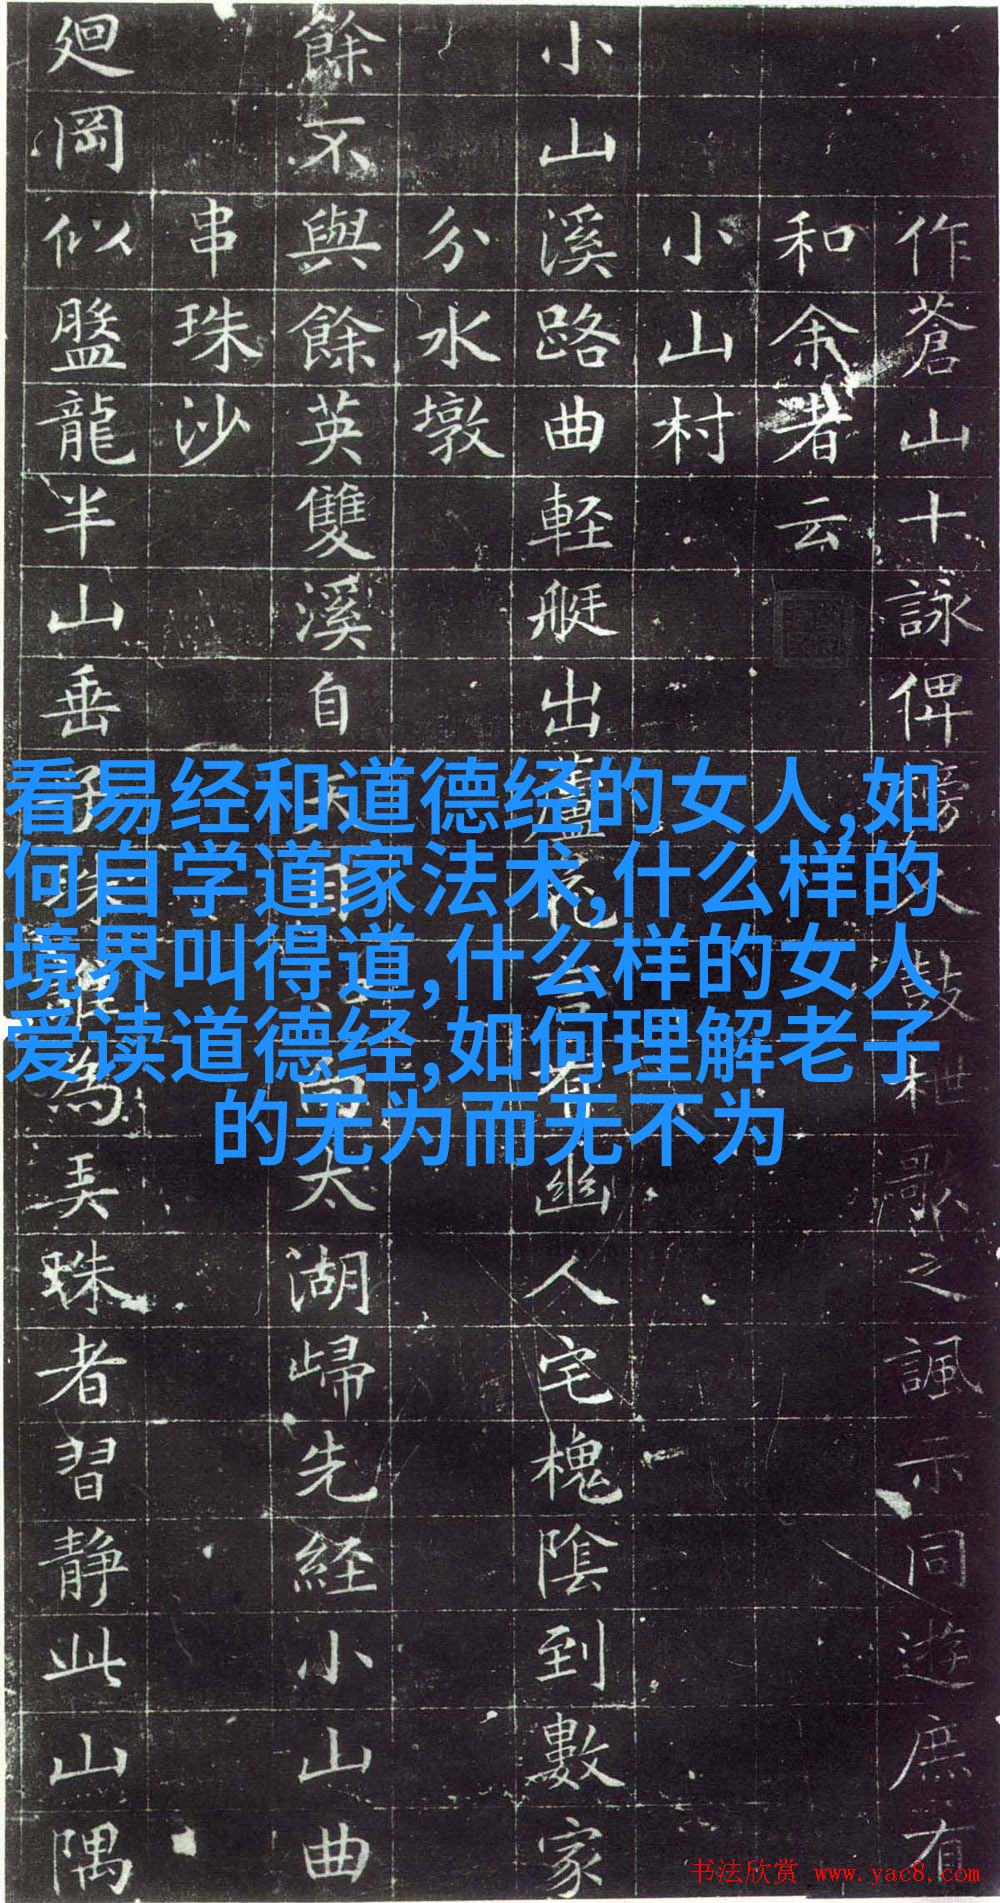 作蒼山十詠俾榜人鼓枻歌之諷示同遊庶有
和余者云
小山村
小山溪路曲軽艇出蘆花言有幽人宅槐陰到數家
分水墩
餘不與餘英雙溪自天目太湖歸先経小山曲
串珠沙
廻岡似盤龍半山垂子珠誰為弄珠者習静此山隅
看易经和道德经的女人,如
何自学道家法术,什么样的
境界叫得道,什么样的女人
爱读道德经,如何理解老子
的无为而无不为
书法欣赏 www.yac8.com